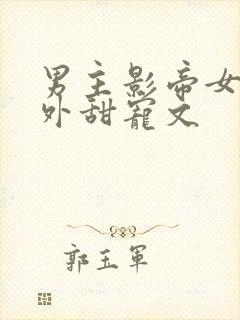 男主影帝女
外甜宠文
郭玉军